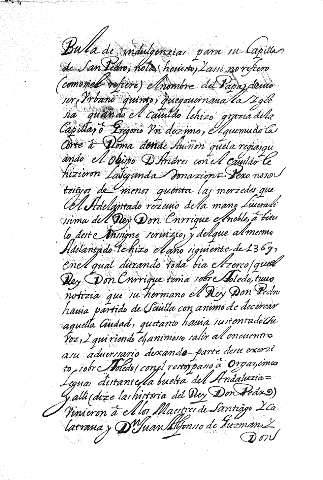 Bula de indulgenzias para su Capilla
de San Pedro, no la he visto, y así no refiero
(como él refiere) el nombre del Papa, de ser
ser, Urbano quinto, que governava la Yglesia
quando el Cavildo le hizo grazia de la
Capilla, ó Gregorio Undezimo, el que mudó la
Corte á Roma donde Aviñon que la regia, quando
el Obispo D. Andres con el Cavildo le
hizieron la segunda Donazion. Pero nosotros
de menor quenta las mercedes que
el Adelantado rezevió de la mano liveralissima
del Rey Don Enrrique el noble, á título
de este insigne servizio, y del que al mesmo
Adelantado le hizo el año siguiente de 1369,
en el qual durando toda bia el zerco, (que el
Rey Don Enrrique tenia sobre Toledo, tuvo
notizia que su hermano el Rey Don Pedro
havia partido de Sevilla con animo de decercar
aquella Ciudad, que tanto havia sustentado su
voz, y quiriendo el animoso salir al encuentro
a su adversario dexando parte de su exercito,
sobre Toledo, con el resto paso á Orgaz, cinco
leguas distante, la buelta del Andaluzia
y alli (dize la historia del Rey Don Pedro)
vinieron á él los Maestres de Santiago y Calatrava
y Dn. Juan Alfonso de Guzman, y
Don